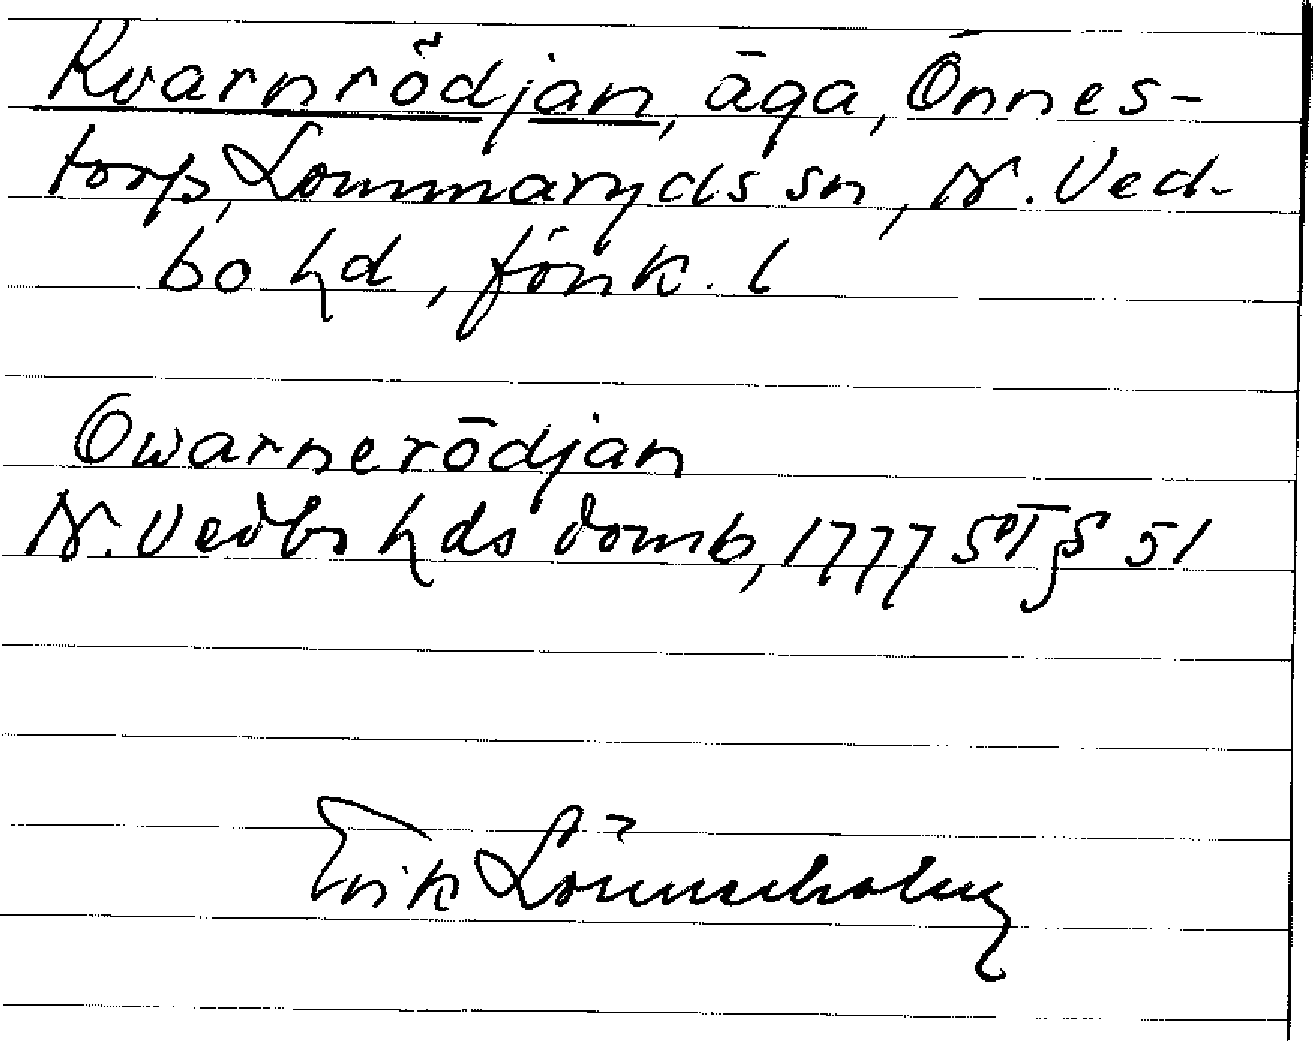 Kvarnrödjan, äga, Önnes-
torp, Lommaryds sn, N. Ved-
bo hd, Jönk. l
Qwarnerödjan
N. Vedbo hds domb, 1777 ST § 51
Erik Lönnerholm